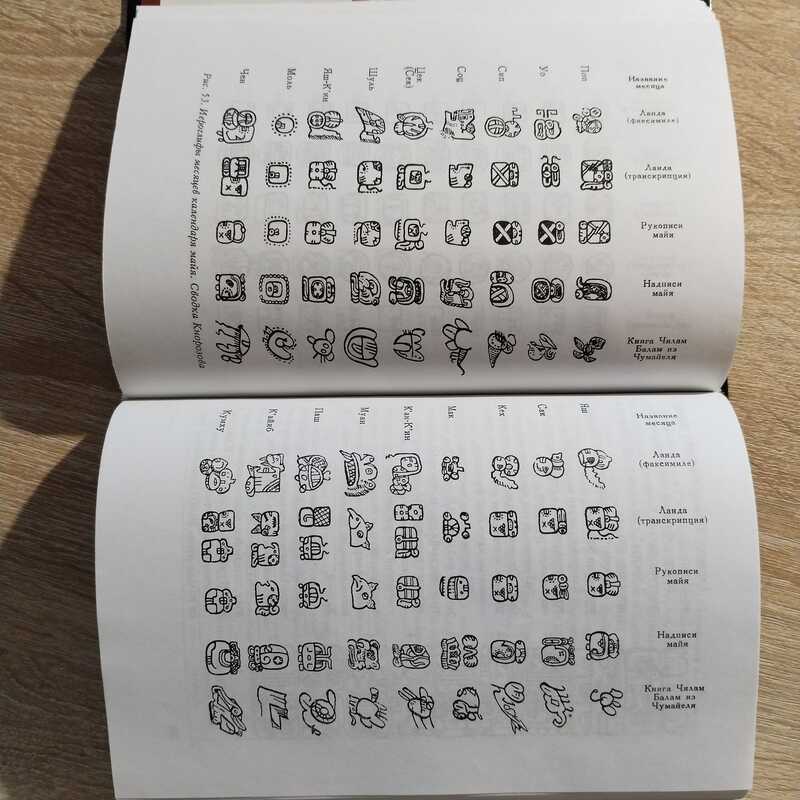 Название
месяца
Ланда
(факсимиле)
Ланда
(транскрипция)
Рукописи
майя
Надписи
майя
Книга Чилам
Балам из
Чумайеля
Поп
Уо
Сип
Соц
Цек
(Сек)
Шуль
Яш-К'ин
Моль
Чен
Рис. 53. Иероглифы месяцев календаря майя. Сводка Кнорозова
Название
месяца
Ланда
(факсимиле)
Ланда
(транскрипция)
Рукописи
майя
Надписи
майя
Книга Чилам
Балам из
Чумайеля
Яш
Сак
Кех
Мак
К'ан-К'ин
Муан
Паш
К'айяб
Кумху